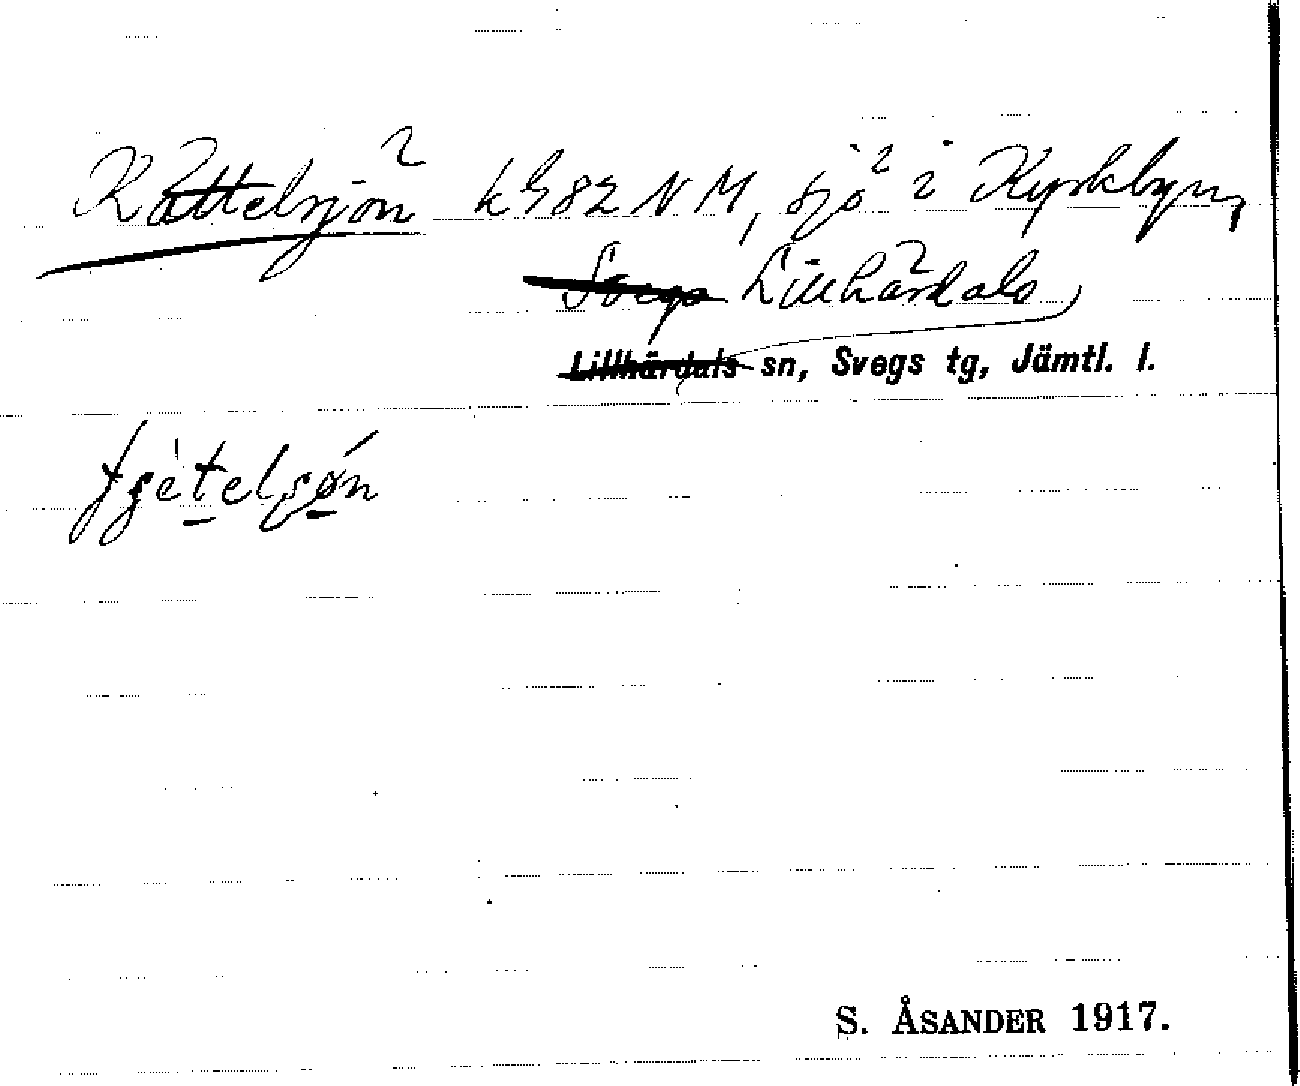 Kättelsjön k982 NM, sjö i Kyrkbyn,
Svegs Lillhärdals
Lillhärdals sn, Svegs tg, Jämtl. l.
S. ÅSANDER 1917.